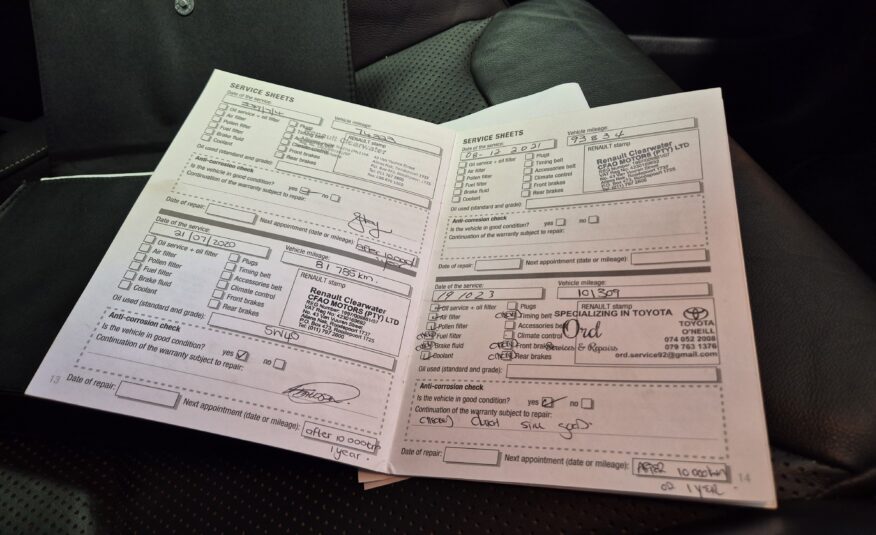 SERVICE SHEETS
Date of the service:
Vehicle mileage:
Oil service + oil filter
Air filter
Pollen filter
Fuel filter
Brake fluid
Coolant
Plugs
Timing belt
Accessories belt
Climate control
Front brakes
Rear brakes
RENAULT stamp
Renault Clearwater
Oil used (standard and grade):
Anti-corrosion check
Is the vehicle in good condition? yes no
Continuation of the warranty subject to repair:
Date of repair:
Next appointment (date or mileage):
Date of the service:
21/07/2020
Vehicle mileage:
81 785 km.
Oil service + oil filter
Air filter
Pollen filter
Fuel filter
Brake fluid
Coolant
Plugs
Timing belt
Accessories belt
Climate control
Front brakes
Rear brakes
RENAULT stamp
Renault Clearwater
CFAO MOTORS (PTY) LTD
Oil used (standard and grade):
5W40
Anti-corrosion check
Is the vehicle in good condition? yes no
Continuation of the warranty subject to repair:
Date of repair:
Next appointment (date or mileage):
after 10 000km
1 year.
13
SERVICE SHEETS
Date of the service:
08-12 2021
Vehicle mileage:
93834
Oil service + oil filter
Air filter
Pollen filter
Fuel filter
Brake fluid
Coolant
Plugs
Timing belt
Accessories belt
Climate control
Front brakes
Rear brakes
RENAULT stamp
Renault Clearwater
CFAO MOTORS (PTY) LTD
Oil used (standard and grade):
Anti-corrosion check
Is the vehicle in good condition? yes no
Continuation of the warranty subject to repair:
Date of repair:
Next appointment (date or mileage):
Date of the service:
19 10 23
Vehicle mileage:
101309
Oil service + oil filter
Air filter
Pollen filter
Fuel filter
Brake fluid
Coolant
Plugs
Timing belt
Accessories belt
Climate control
Front brakes
Rear brakes
RENAULT stamp
SPECIALIZING IN TOYOTA
Ord
Services & Repairs
TOYOTA
O'NEILL
074 052 2008
079 763 1376
ord.service92@gmail.com
Oil used (standard and grade):
Anti-corrosion check
Is the vehicle in good condition? yes no
Continuation of the warranty subject to repair:
Clutch still good.
Date of repair:
Next appointment (date or mileage):
AFTER 10 000km
or 1 YER.
14